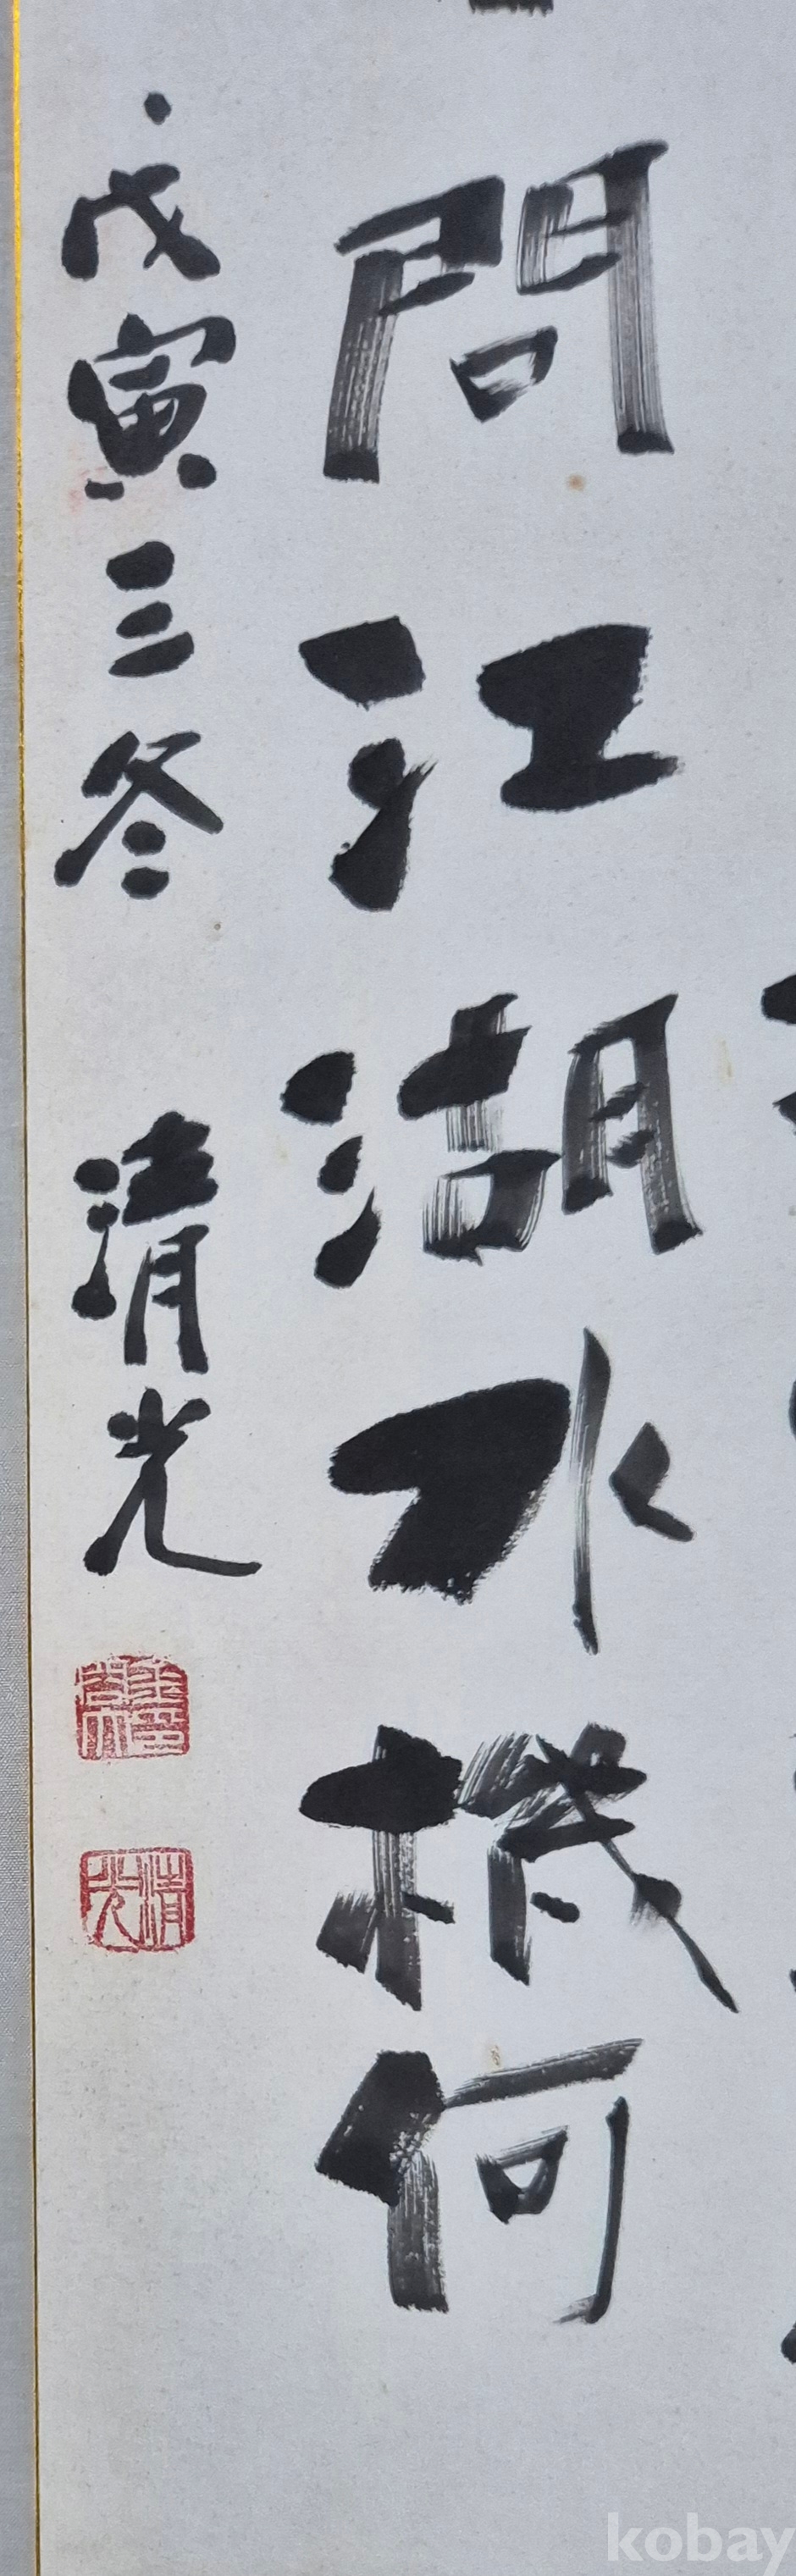 問江湖水機何
戊寅三冬 清光
清光
kobay